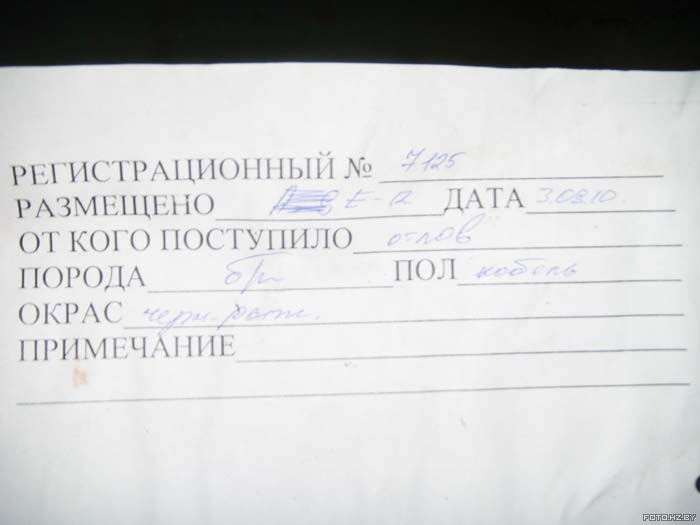 РЕГИСТРАЦИОННЫЙ № 7125
РАЗМЕЩЕНО Е-12 ДАТА 3.08.10.
ОТ КОГО ПОСТУПИЛО отлов
ПОРОДА б/п ПОЛ кобель
ОКРАС черн-
ПРИМЕЧАНИЕ
FOTO.HZ.BY